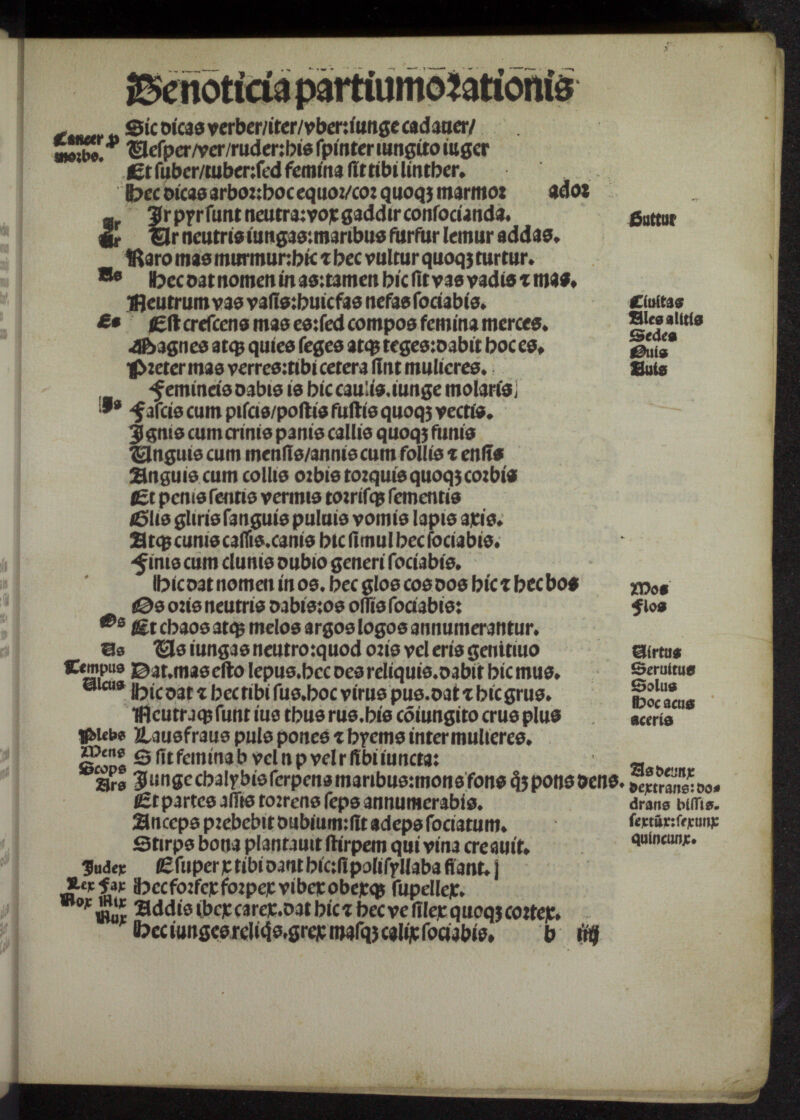 De noticia partium orationis
Sic dicas verber/iter/vber:iunge cadauer/
Cancer p morbo.
Vesper/ver/ruder:his spinter iungito iuger
Et suber/tuber:sed femina sit tibi linther.
Hec dicas arbor:hoc equor/cor quoqꝫ marmor ador
Ir pyr sunt neutra:vox gaddir consocianda.
Ir
Guttur
Ur
Ur neutris iungas:maribus furfur lemur addas.
Raro mas murmur:hic ⁊ hec vultur quoqꝫ turtur.
As
Hec dat nomen in as:tamen hic sit vas vadis ⁊ mas.
Neutrum vas vasis:huic fas nefas sociabis.
Ciuitas
Es
Est crescens mas es:sed compos femina merces.
Ales alitis
Magnes atqꝫ quies seges atqꝫ teges:dabit hoc es.
Sedes
Quis
Preter mas verres:tibi cetera sint mulieres.
Femineis dabis is hic caulis.iunge molaris
Is
Fascis cum piscis/postis fustis quoqꝫ vectis.
Ignis cum crinis panis callis quoqꝫ funis
Unguis cum mensis/annis cum follis ⁊ ensis
Anguis cum collis orbis torquis quoqꝫ corbis
Et penis sentis vermis torrisqꝫ sementis
Glis gliris sanguis puluis vomis lapis axis.
Atqꝫ cunis cassis.canis hic simul hec sociabis.
Finis cum clunis dubio generi sociabis.
Hic dat nomen in os. hec glos cos dos hic ⁊ hec bos
Mos
Os oris neutris dabis:os ossis sociabis:
Flos
Os
Et chaos atqꝫ melos argos logos annumerantur.
Us
Us iungas neutro:quod oris vel eris genitiuo
Uirtus
Tempus
Dat.mas esto lepus.hec des reliquis.dabit hic mus.
Seruitus
Ulcus
Hic dat ⁊ hec tibi sus.hoc virus pus.dat ⁊ hic grus.
Solus
Hoc acus
Neutraqꝫ sunt ius thus rus.his cōiungito crus plus
aceris
Plebs
Laus fraus puls pones ⁊ hyems inter mulieres.
Mens
S sit femina b vel n p vel r sibi iuncta:
Scops
Ars
Iunge chalybis serpens maribus:mons fons qꝫ pons dens.
As deunx
dextrans:do⸗
Et partes assis torrens seps annumerabis.
drans bissis.
Anceps prebebit dubium:sit adeps sociatum.
sextūx:sexunx
Stirps bona plantauit stirpem qui vina creauit.
quincunx.
Iudex
E super x tibi dant hic:si polisyllaba fiant.
Lex Fax
Hec forfex forpex vibex obexqꝫ supellex.
Nox Nix
Nux
Addis ibex carex.dat hic ⁊ hec ve silex quoqꝫ cortex.
Hec iunges reliqs.grex masqꝫ calix sociabis. b iiij